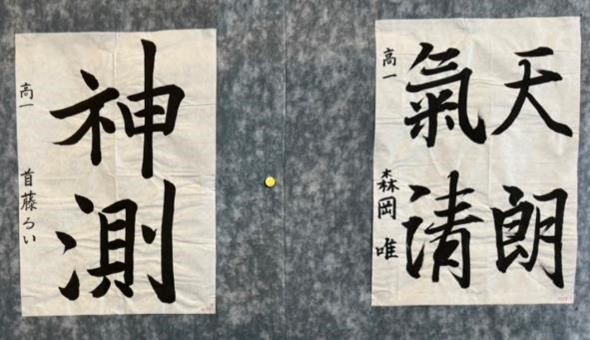 天朗
氣清
高一 森岡 唯
神測
高一 首藤るい